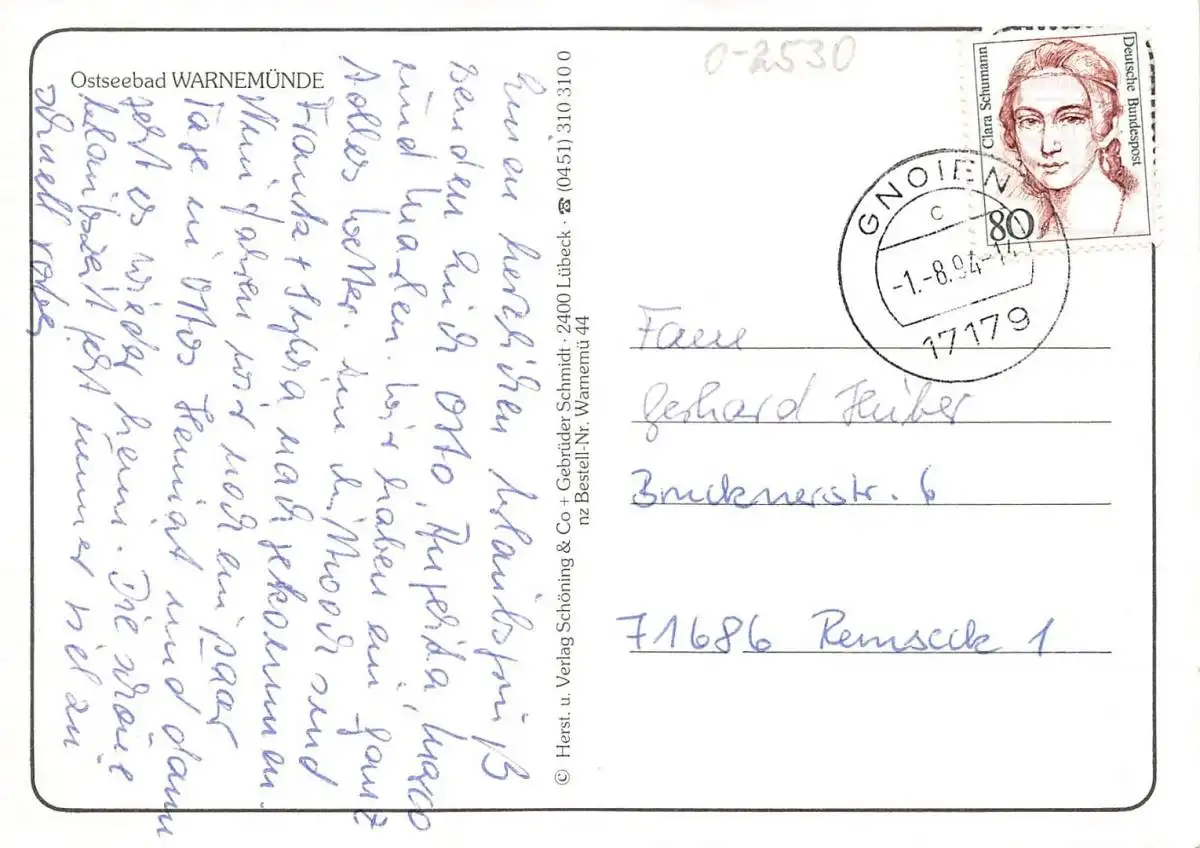 Ostseebad WARNEMÜNDE
Einen herzlichen Urlaubsgruß
senden Euch Otto, Angelika, Marco
und Maren. Wir haben ein ganz
tolles Wetter. Am Mittwoch sind
+ nachgekommen.
Nun fahren wir noch ein paar
Tage in Ottos Heimat und dann
geht es wieder heim. Die schöne
Urlaubszeit geht immer viel zu
schnell vorbei
© Herst. u. Verlag Schöning & Co + Gebrüder Schmidt · 2400 Lübeck · ☎ (0451) 310 310 0
nz Bestell-Nr. Warnemü 44
0-2530
Clara Schumann
Deutsche Bundespost
80
GNOIEN
c
-1.-8.94-14
17179
Fam
Gerhard Huber
Brucknerstr. 6
71686 Remseck 1